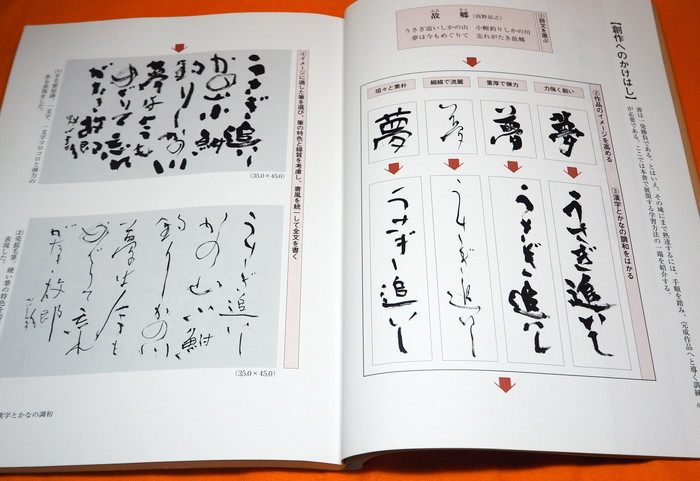 【創作へのかけはし】
書は一発勝負である。とはいえ、その域にまで熟達するには、手順を踏み、完成作品へと導く訓練
が必要である。ここでは本書で展開する学習方法の一端を紹介する。
①詩文を選ぶ
ふるさと
故郷（高野辰之）
うさぎ追いしかの山　小鮒釣りしかの川
夢は今もめぐりて　忘れがたき故郷
②作品のイメージを高める
力強く鋭い
重厚で弾力
細線で流麗
坦々と素朴
夢
夢
夢
夢
③漢字とかなの調和をはかる
うさぎ追いし
うさぎ追いし
うさぎ追いし
うさぎ追いし
④イメージに適した筆を選び、筆の特色と線質を考慮し、書風を統一して全文を書く
うさぎ追いし
かの山小鮒
釣りしかの川
夢は今も
めぐりて忘れ
がたき故郷
(35.0×45.0)
うさぎ追いし
かの山小鮒
釣りしかの川
夢は今も
めぐりて忘れ
がたき故郷
(35.0×45.0)
漢字とかなの調和
8